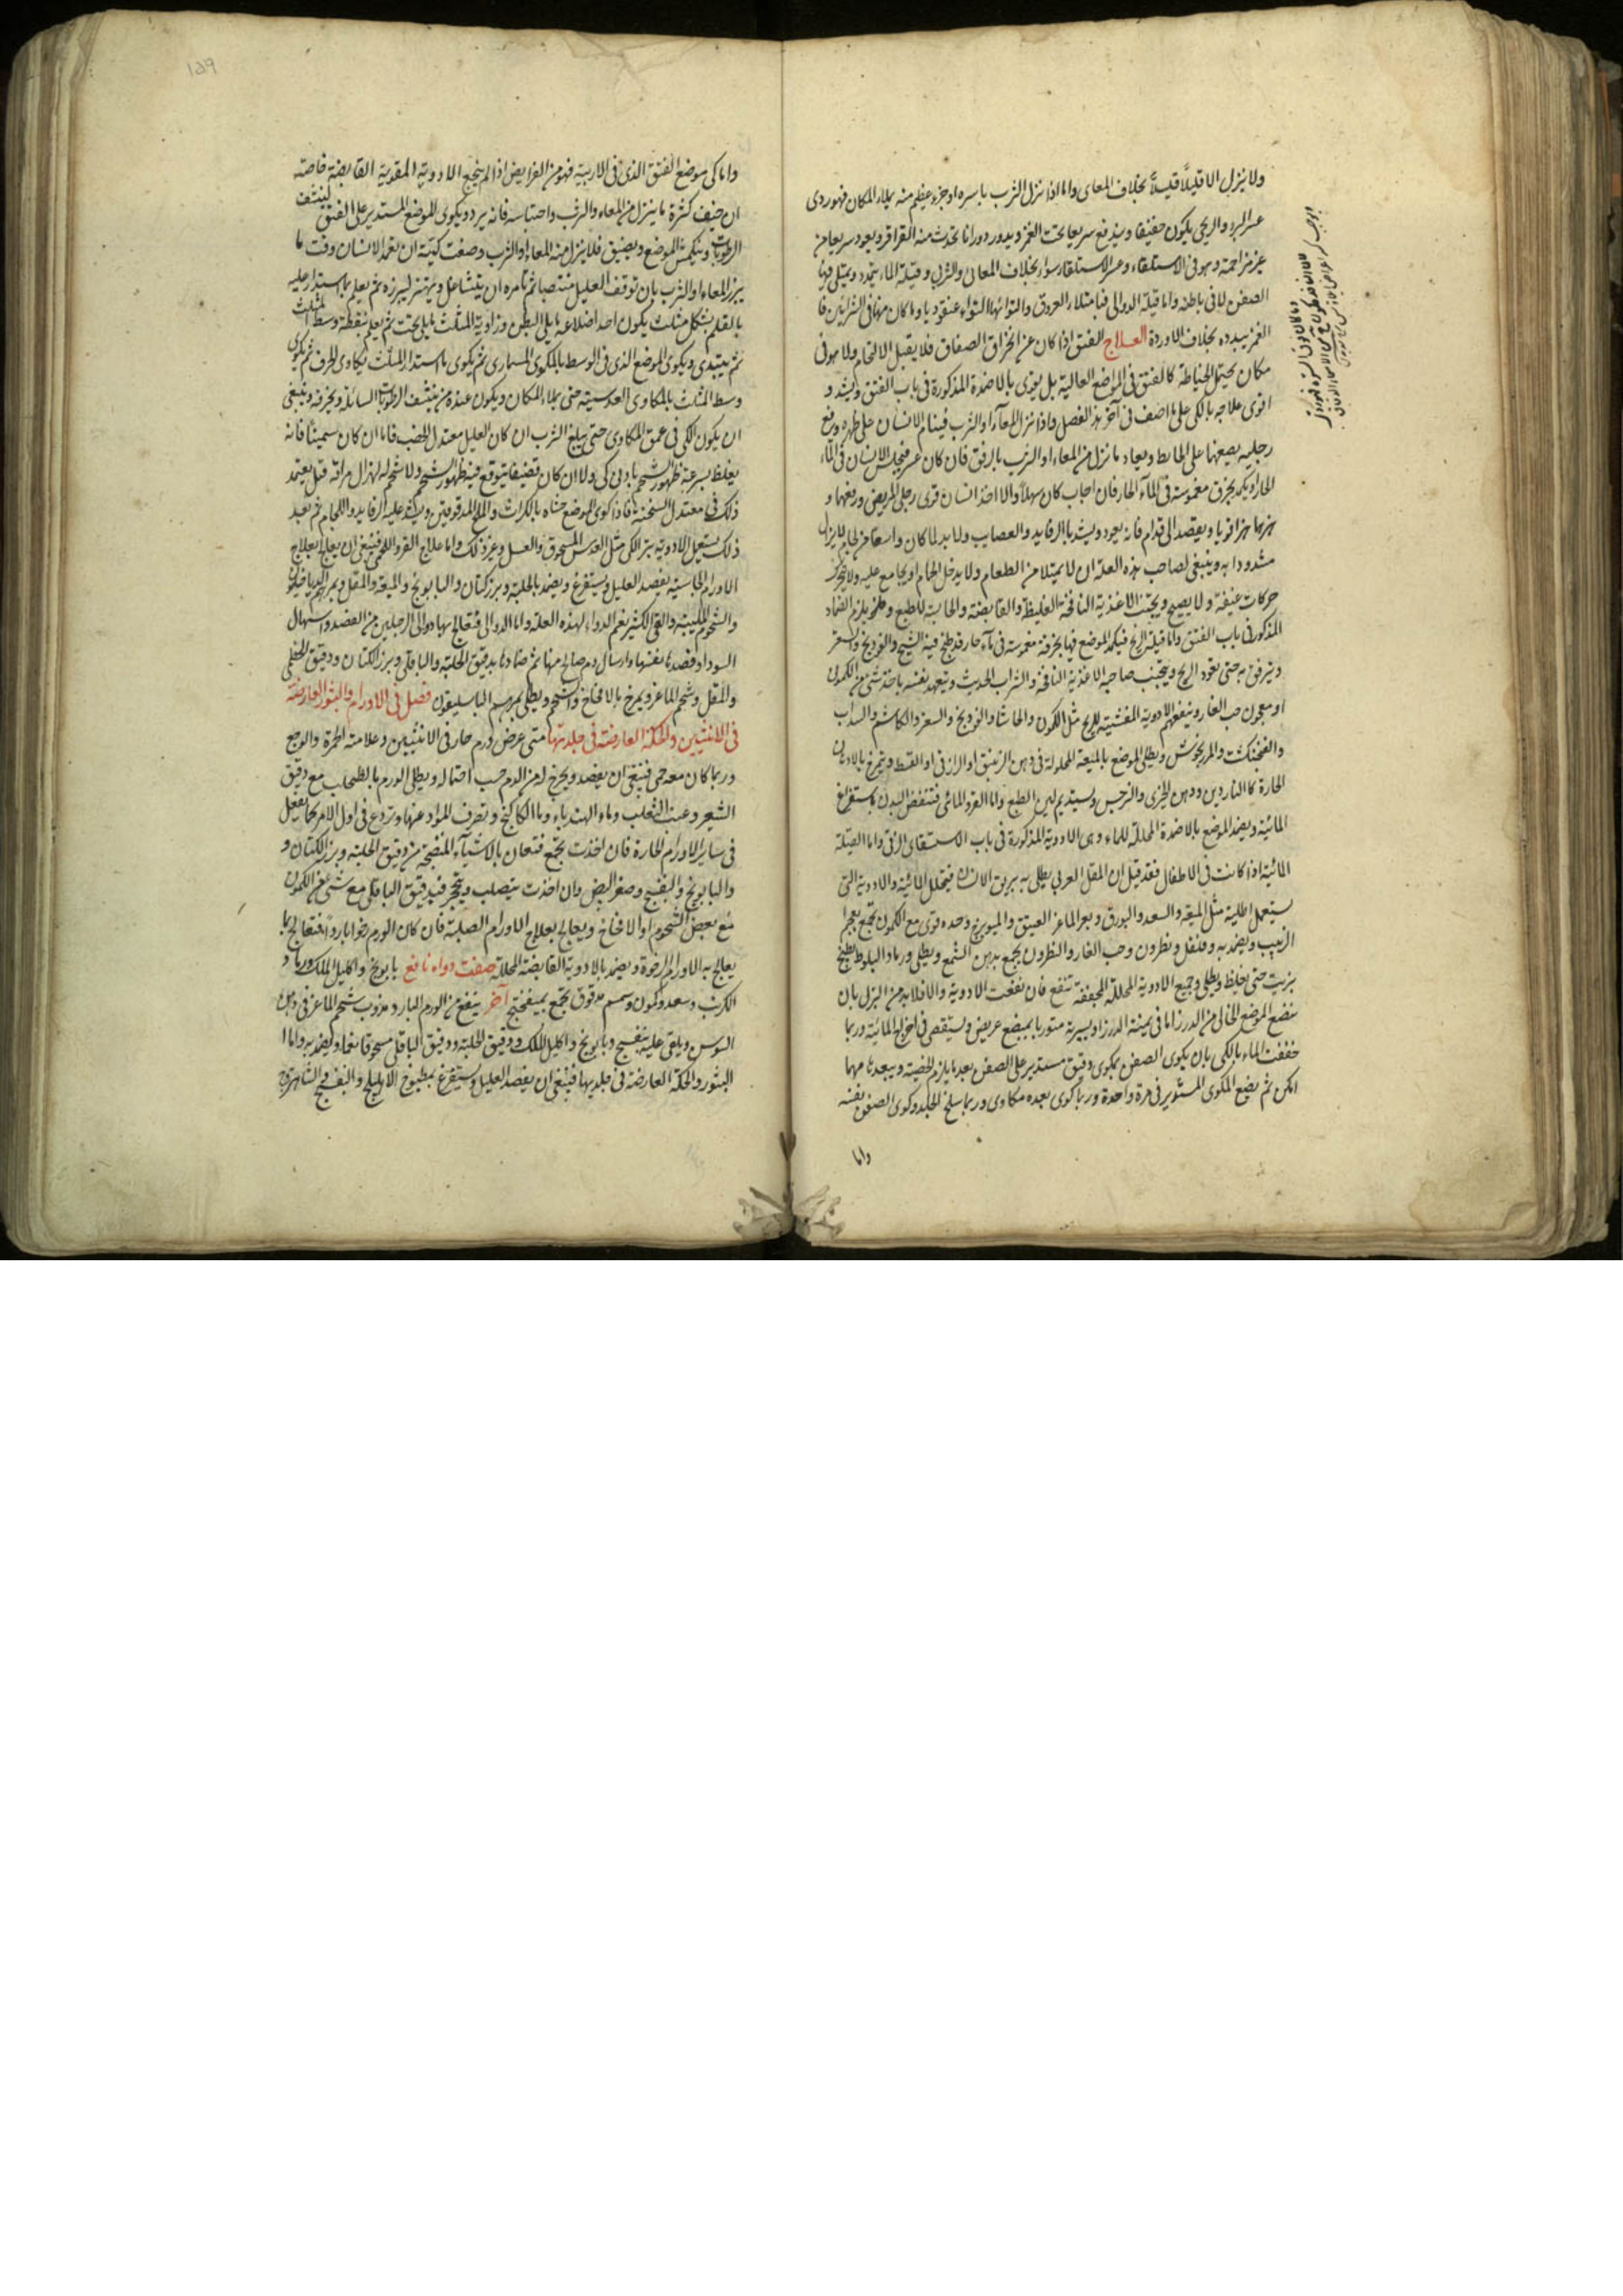 ولا ينزل الا قليلاً قليلاً بخلاف المعاى واما اذا نزل الثرب باسره او جزء عظيم منه يملاء المكان فهو ردى
عسر البرء والريحى يكون خفيفا ويندفع سريعا تحت الغمز ويدور دورانا تحدث منه القراقر ويعود سريعا من
غير مزاحمة وهو فى الاستلقاء وغير الاستلقاء سواء بخلاف المعائى والثربى وقيلة الماء يتمدد ويمتلى فيها
الصفن لا فى باطنه واما قيلة الدوالى فبامتلاء العروق والتوائها التواء عنقوديا وما كان منها فى الشرائين فا
الغمز يبدده بخلاف الاوردة العــلاج الفتق اذا كان عن انخراق الصفاق فلا يقبل الالتحام ولا هو فى
مكان يحتمل الخياطة كالفتق فى المواضع العالية بل يقوى بالاضمدة المذكورة فى باب الفتق وليشد و
اقوى علاجه بالكى على ما اصف فى آخر هذا الفصل واذا نزل المعآء او الثرب فينام الانسان على ظهره ورفع
رجليه يضعهما على الحايط ويعاد ما نزل من المعاء او الثرب بالرفق فان كان عسر فيجلس الانسان فى المآء
الحار او يكمد بخرق مغموسة فى المآء الحار فان اجاب كان سهلا والا اخذ انسان قوى رجلى المريض ورفعهما و
هزهما هزا قويا ويقصد الى قدام فانه يعود ويشد بالرفايد والعصايب ولا بد لما كان واسعا من لجام لا يزال
مشدودا به وينبغى لصاحب هذه العلة ان لا يمتلا من الطعام ولا يدخل الحمام او يجامع عليه ولا يتحرك
حركات عنيفة ولا يصيح ويجتنب الاغذية النافخة الغليظة والقابضة والحابسة للطبع و يلزم الضماد
المذكور فى باب الفتق واما قيلة الريح فيكمد الموضع فيها بخرقة مغموسة فى مآء حار قد طبخ فيه الشيح والفودنج والسعتر
ويترفق به حتى يعود الريح ويجتنب صاحبه الاغذية النافخة والشراب الحديث ويتعهد نفسه باخذ شئ من الكمونى
او معجون حب الغار وينفعهم الادوية المفشية للريح مثل الكمون والحاشا والفودنج والسعتر والكاشم والسداب
والفنجنكشت والمرزنجوش ويطلى الموضع بالميعة المحلولة فى دهن الزنبق او الرازقى او القسط ويتمرخ بالادهان
الحارة كالناردين ودهن الخيرى والنرجس وليستديم لين الطبع واما القرو المائى فتنفض البدن باستفراغ
المائية ويضمد الموضع بالاضمدة المحللة للماء وهى الادوية المذكورة فى باب الاستسقاى الزقى واما القيلة
المائية اذا كانت فى الاطفال فقد قيل ان المقل العربى يطلى به بريق الانسان فيتحلل المائية والادوية التى
يستعمل اطلية مثل الميعة والسعد والبورق وبعر الماعز العتيق والميويزج وحده وقوى مع الكمون تجمع بعجم
الزبيب ويضمد به وفلفل ونطرون وحب الغار والنطرون يجمع بدهن الشمع ويطلى ورماد البلوط يطبخ
بزيت حتى يغلظ ويطلى وجميع الادوية المحللة المجففة تنفع فان نفعت الادوية والا فلا بد من البزل بان
يبضع الموضع الخالى من الدرز اما فى يمينة الدرز او يسيرته متوربا بمبضع عريض ويستقصى فى اخراج المائية وربما
خففت الماء بالكى بان يكوى الصفن بمكوى دقيق مستدير على الصفن بعد ما يلزم الخصية ويبعدها مهما
امكن ثم يضع المكوى المستدير فى مرة واحدة وربما كوى بعده مكاوى وربما سلخ الجلد وكوى الصفن نفسه
واما
١٥٩
واما كى موضع الفتق الذى فى الاربية فهو من الفرايض اذا لم ينجع الادوية المقوية القابضة خاصة
ان خيف كثرة ما ينزل من المعاء والثرب واحتباسه فانه يرد ويكوى الموضع المستدير على الفتق لينشف
الرطوبات وينكمش الموضع ويضيق فلا ينزل منه المعاء او الثرب وصفت كيته ان يعمد الانسان وقت ما
يبرز المعاء او الثرب بان توقف العليل منتصبا ثم تامره ان يتشاعل ويهتز ليبرزه ثم يعلم ما استدار عليه
بالقلم بشكل مثلث يكون احد اضلاعه مايلى البطن وزاوية المثلث مايلى تحت ثم يعلم بنقطة وسط المثلث
ثم يبتدى ويكوى الموضع الذى فى الوسط بالمكوى المسمارى ثم يكوى ما استدار المثلث بمكاوى الحرف ثم يكوى
وسط المثلث بالمكاوى العدسية حتى يملاء المكان ويكون عنده من ينشف الرطوبات السائلة ويحرقه وينبغى
ان يكون الكى فى عمق المكاوى حتى يبلغ الثرب ان كان العليل معتدل الخصب فاما ان كان سمينا فانه
يغلظ بسرعة ظهور الشحم بادنى كى ولا ان كان قضيفا يتوقع فيه ظهور الشحم ولا شحم له لهزال مراقه قبل يعتمد
ذلك فى معتدل السحنة فاذا كوى الموضع حشاه بالكراث والملح المدقوقين ويشد عليه الرفايد واللجام ثم بعد
ذلك يستعمل الادوية تبرأ الكى مثل العدس المسحوق والعسل وغير ذلك واما علاج القرو اللحمى فينبغى ان يعالج بعلاج
الاورام الجاسية يفصد العليل ويستفرغ ويضمد بالحلبة وبزر كتان والبابونج والميعة والمقل وبمرهم الدياخيلون
والشحوم المليينة والقى الكثير نعم الدواء لهذه العلة واما الدوالى فتعالج بها دوالى الرجلين من الفصد واسهال
السوداء وفصدها نفسها وارسال دم صالح منها ثم ضمادها بدقيق الحلبة والباقلى وبزر الكتان ودقيق الحنطى
والمقل وشحم الماعز ويمرخ بالامخاخ والشحم ويطلى بمرهم الباسليقون فصل فى الاورام والبثور العارضة
فى الانثيين والحكة العارضة فى جلدتها متى عرض ورم حار فى الانثيين وعلامته الحمرة والوجع
وربما كان معه حمى فينبغى ان يفصد ويخرج له من الدم حسب احتماله ويطلى الورم بالطحلب مع دقيق
الشعير وعنب الثعلب وماء الهندباء وماء الكاكنج وتصرف المواد عنها وتردع فى اول الامر كما يفعل
فى ساير الاورام الحارة فان اخذت تجمع فتعان بالاشيآء المنضجة من دقيق الحلبة وبزر الكتان و
والبابونج والبنفسج وصفر البيض وان اخذت يتصلب ويتحجر فبدقيق الباقلى مع شئ من الكمون
مع بعض الشحوم او الامخاخ ويعالج بعلاج الاورام الصلبة فان كان الورم رخوا باردا فتعالج بما
يعالج به الاورام الرخوة ويضمد بالادوية القابضة المحللة صفت دواء نافع بابونج واكليل الملك ورماد
الكرنب وسعد وكمون وسمسم مدقوق يجمع بميفختج آخر ينفع من الورم البارد مذوب شحم الماعز فى دهن
السوسن ويلقى عليه بنفسج وبابونج واكليل الملك ودقيق الحلبة ودقيق الباقلى مسحوقا نعما ويضمد به واما ا
البثور والحكة العارضة فى جلديهما فينبغى ان يفصد العليل ويستفرغ بمطبوخ الاهليلج والبنفسج والشاهترج